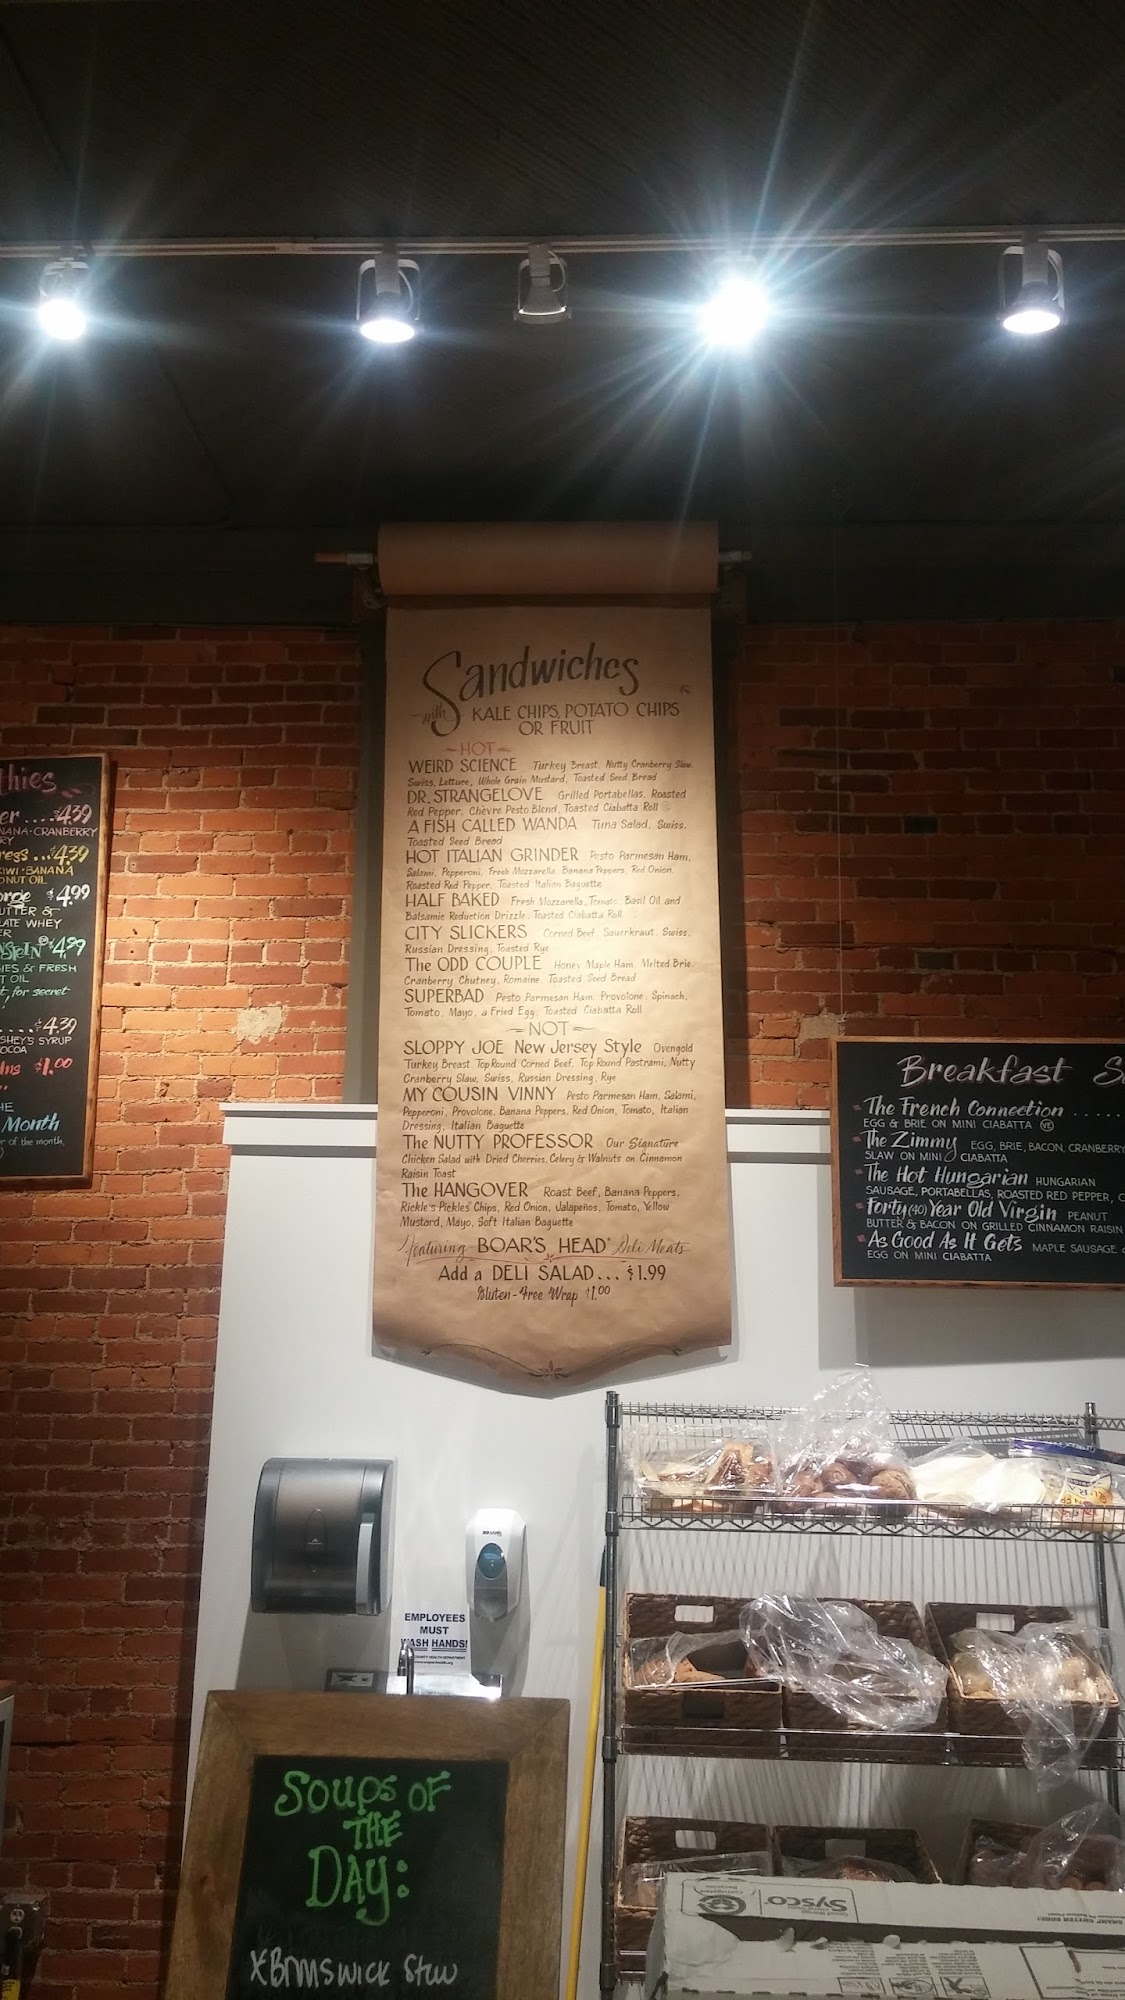 Sandwiches
with KALE CHIPS, POTATO CHIPS
OR FRUIT
~HOT~
WEIRD SCIENCE Turkey Breast, Nutty Cranberry Slaw,
Swiss, Lettuce, Whole Grain Mustard, Toasted Seed Bread
DR. STRANGELOVE Grilled Portabellas, Roasted
Red Pepper, Chèvre Pesto Blend, Toasted Ciabatta Roll
A FISH CALLED WANDA Tuna Salad, Swiss,
Toasted Seed Bread
HOT ITALIAN GRINDER Pesto Parmesan Ham,
Salami, Pepperoni, Fresh Mozzarella, Banana Peppers, Red Onion,
Roasted Red Pepper, Toasted Italian Baguette
HALF BAKED Fresh Mozzarella, Tomato, Basil Oil and
Balsamic Reduction Drizzle, Toasted Ciabatta Roll
CITY SLICKERS Corned Beef, Sauerkraut, Swiss,
Russian Dressing, Toasted Rye
The ODD COUPLE Honey Maple Ham, Melted Brie,
Cranberry Chutney, Romaine, Toasted Seed Bread
SUPERBAD Pesto Parmesan Ham, Provolone, Spinach,
Tomato, Mayo, a Fried Egg, Toasted Ciabatta Roll
~NOT~
SLOPPY JOE New Jersey Style Ovengold
Turkey Breast, Top Round Corned Beef, Top Round Pastrami, Nutty
Cranberry Slaw, Swiss, Russian Dressing, Rye
MY COUSIN VINNY Pesto Parmesan Ham, Salami,
Pepperoni, Provolone, Banana Peppers, Red Onion, Tomato, Italian
Dressing, Italian Baguette
The NUTTY PROFESSOR Our Signature
Chicken Salad with Dried Cherries, Celery & Walnuts on Cinnamon
Raisin Toast
The HANGOVER Roast Beef, Banana Peppers,
Rickle's Pickles Chips, Red Onion, Jalapeños, Tomato, Yellow
Mustard, Mayo, Soft Italian Baguette
Featuring BOAR'S HEAD® Deli Meats
Add a DELI SALAD... $1.99
Gluten-Free Wrap $1.00
thies
er ....$4.39
NANA-CRANBERRY
RY
ress ...$4.39
KIWI-BANANA
ONUT OIL
orge $4.99
UTTER &
LATE WHEY
ER
NSTEIN $4.99
IES & FRESH
T OIL
t, for secret
....$4.39
SHEY'S SYRUP
COCOA
Ins $1.00
HE
Month
r of the month,
Breakfast S
The French Connection ......
EGG & BRIE ON MINI CIABATTA VE
The Zimmy EGG, BRIE, BACON, CRANBERRY
SLAW ON MINI CIABATTA
The Hot Hungarian HUNGARIAN
SAUSAGE, PORTABELLAS, ROASTED RED PEPPER, C
Forty (40) Year Old Virgin PEANUT
BUTTER & BACON ON GRILLED CINNAMON RAISIN
As Good As It Gets MAPLE SAUSAGE
EGG ON MINI CIABATTA
EMPLOYEES
MUST
WASH HANDS!
COUNTY HEALTH DEPARTMENT
SOUPS OF
THE
DAY:
*Brunswick Stew
Sysco